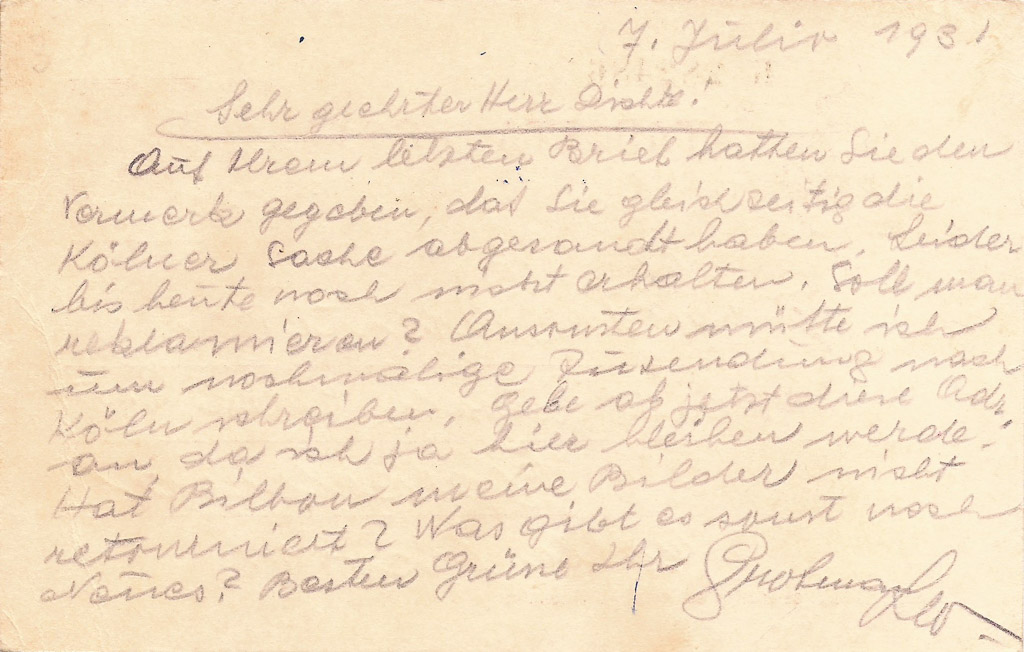 7. Julio 1931
Sehr geehrter Herr
Auf Ihrem letzten Brief hatten Sie den
Vormerk gegeben, daß Sie gleichzeitig die
Kölner Sache abgesandt haben. Leider
bis heute noch nicht erhalten. Soll man
reklamieren? Ansonsten müßte ich
um nochmalige Zusendung nach
Köln schreiben. Gebe ab jetzt diese Adr.
an, da ich ja hier bleiben werde.
Hat Bilbon meine Bilder nicht
retourniert? Was gibt es sonst noch
Neues? Besten Grüße Ihr